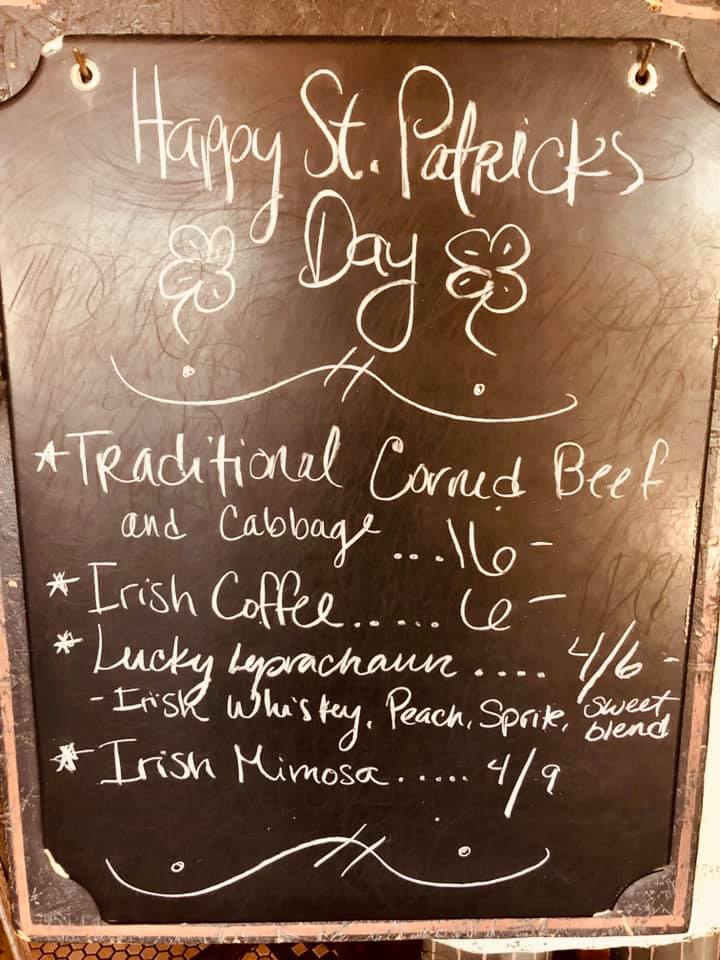 Happy St. Patricks
Day
* Traditional Corned Beef
and Cabbage ...16-
* Irish Coffee...... 6-
* Lucky Leprachaun .... 4/6-
- Irish Whiskey, Peach, Sprite, sweet
blend
* Irish Mimosa...... 4/9